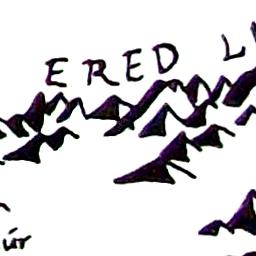 ERED L
úr